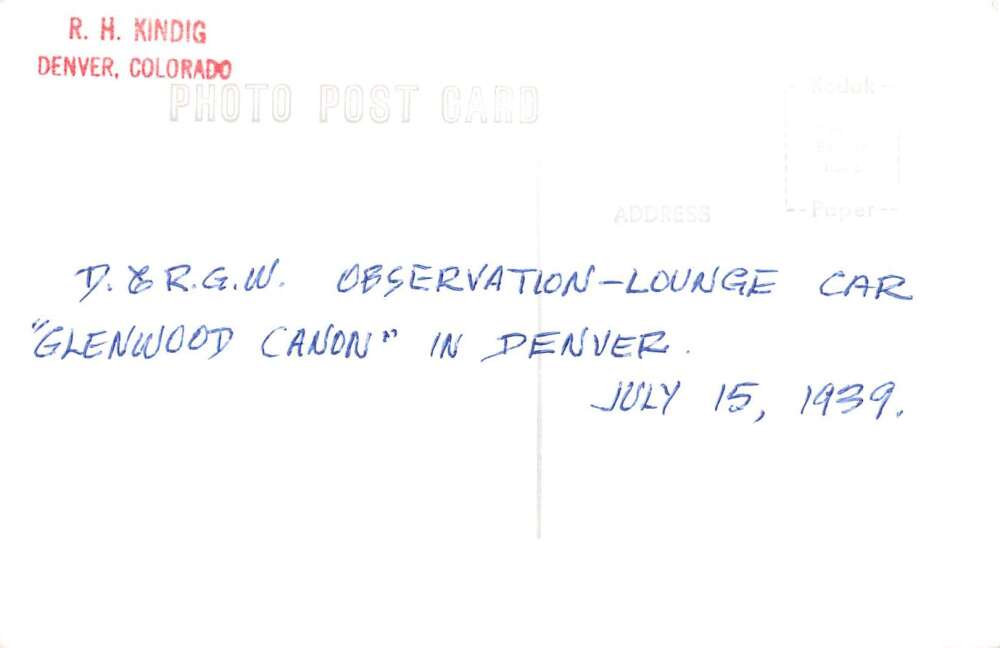 R. H. KINDIG
DENVER, COLORADO
PHOTO POST CARD
Kodak
ADDRESS
Paper
D. & R.G.W. OBSERVATION-LOUNGE CAR
"GLENWOOD CANON" IN DENVER.
JULY 15, 1939.